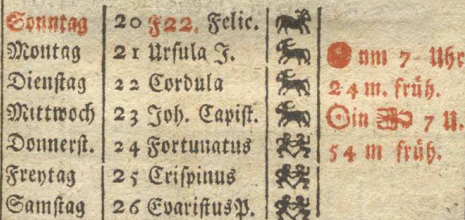 Sonntag 20 F22. Felic.
Montag 21 Ursula J. nm 7 Uhr
Dienstag 22 Cordula 24 m. früh.
Mittwoch 23 Joh. Capist. in 7 U.
Donnerst. 24 Fortunatus 54 m früh.
Freytag 25 Crispinus
Samstag 26 Evaristus P.